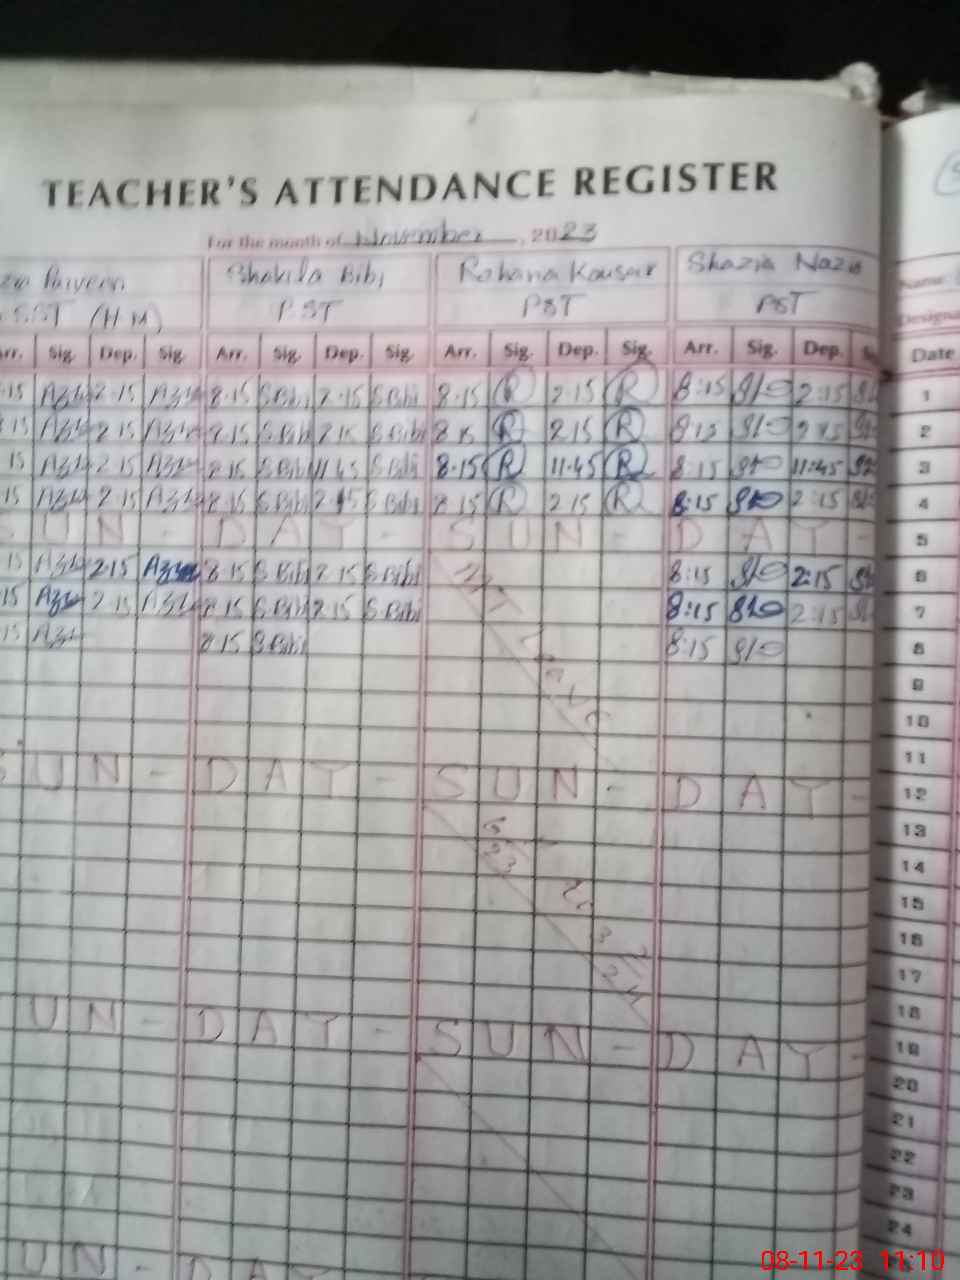 TEACHER'S ATTENDANCE REGISTER
For the month of November, 2023
Parveen Shakila Bibi Rahana Kousar Shazia Nazir Name
SST (HM) PST PST PST
Arr. Sig. Dep. Sig. Arr. Sig. Dep. Sig. Arr. Sig. Dep. Sig. Arr. Sig. Dep. Date
15 2.15 8.15 S.Bibi 2.15 S.Bibi 8.15 R 2.15 R 8:15 2:15 1
15 2.15 8.15 S.Bibi 2.15 S.Bibi 8.15 R 2.15 R 8:15 2:15 2
15 2.15 8.15 S.Bibi 11.45 S.Bibi 8.15 R 11.45 R 8:15 11:45 3
15 2.15 8.15 S.Bibi 2.15 S.Bibi 8.15 R 2.15 R 8:15 2:15 4
SUN - DAY - SUN - DAY - 5
15 2.15 8.15 S.Bibi 2.15 S.Bibi 8:15 2:15 6
15 2.15 8.15 S.Bibi 2.15 S.Bibi 8:15 2:15 7
15 8.15 S.Bibi Leave 8:15 8
9
10
11
SUN - DAY - SUN - DAY - 12
13
23 14
15
16
24 17
18
UN - DAY - SUN - DAY - 19
20
21
22
23
24
UN - DA
08-11-23 11:10